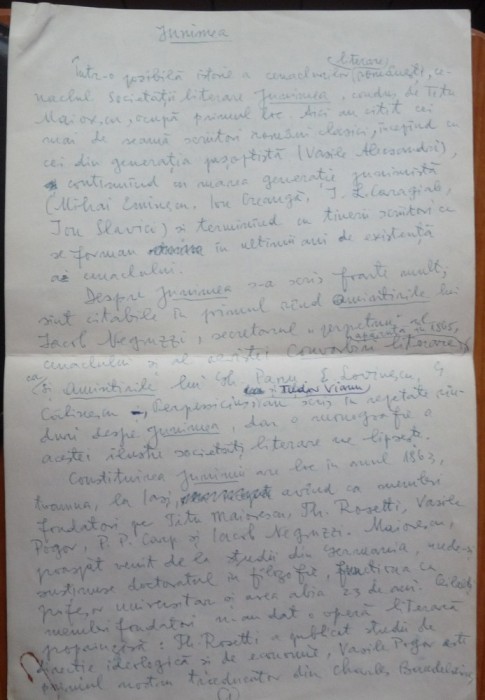 Junimea
literare
Într-o posibilă istorie a cenaclurilor românești, ce-
naclul Societății literare Junimea, condus de Titu
Maiorescu, ocupă primul loc. Aici au citit cei
mai de seamă scriitori români clasici, începînd cu
cei din generația pașoptistă (Vasile Alecsandri),
continuînd cu marea generație junimistă
(Mihai Eminescu, Ion Creangă, I. L. Caragiale,
Ion Slavici) și terminînd cu tinerii scriitori ce
se formau în ultimii ani de existență
ai cenaclului.
Despre Junimea s-a scris foarte mult,
sînt citabile în primul rînd Amintirile lui
Iacob Negruzzi, secretarul "perpetuu" al
cenaclului și al revistei Convorbiri literare
(apărută în 1865,
ca și Amintirile lui Gh. Panu. E. Lovinescu, G.
Călinescu, Perpessicius, Tudor Vianu au scris în repetate rîn-
duri despre Junimea, dar o monografie a
acestei ilustre societăți literare ne lipsește.
Constituirea Junimii are loc în anul 1863,
toamna, la Iași, avînd ca membri
fondatori pe Titu Maiorescu, Th. Rosetti, Vasile
Pogor, P. P. Carp și Iacob Negruzzi. Maiorescu,
proaspăt venit de la studii din Germania, unde-și
susținuse doctoratul în filozofie, funcționa ca
profesor universitar și avea abia 23 de ani. Ceilalți
membri fondatori n-au dat o operă literară
propriuzisă: Th. Rosetti a publicat studii de
direcție ideologică și de economie, Vasile Pogor este
primul nostru traducător din Charles Baudelaire,
1